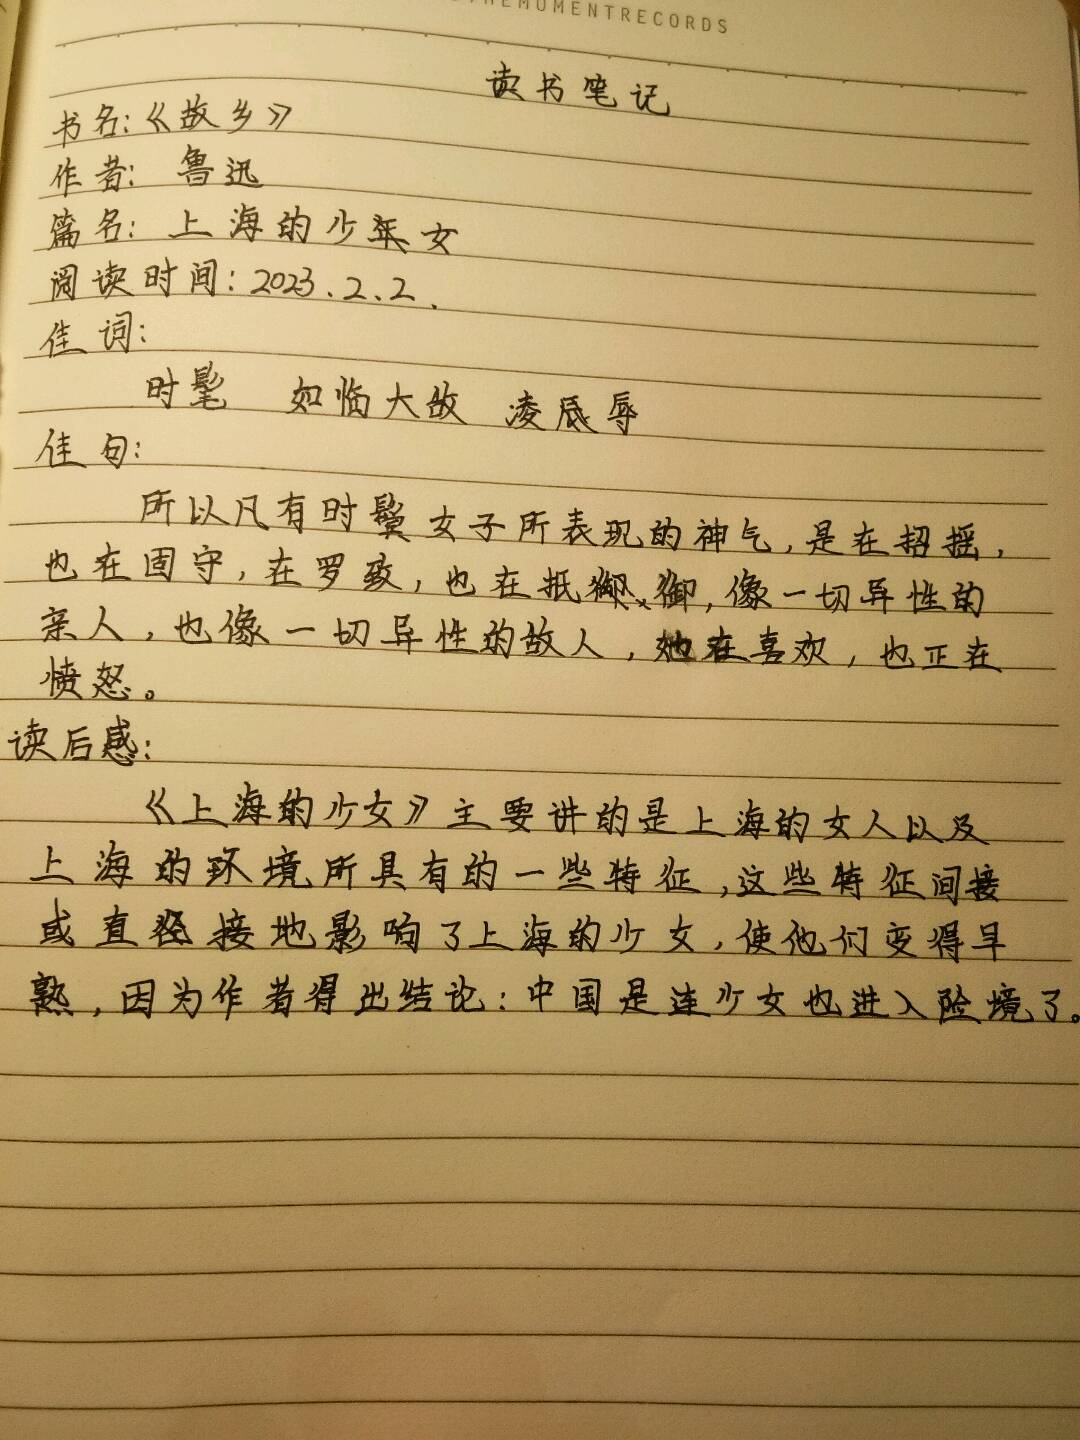 THEMOMENTRECORDS
读书笔记
书名:《故乡》
作者: 鲁迅
篇名: 上海的少女
阅读时间: 2023.2.2.
佳词:
时髦 如临大敌 凌辱
佳句:
所以凡有时髦女子所表现的神气,是在招摇,
也在固守,在罗致,也在抵御,像一切异性的
亲人,也像一切异性的敌人,她在喜欢,也正在
愤怒。
读后感:
《上海的少女》主要讲的是上海的女人以及
上海的环境所具有的一些特征,这些特征间接
或直接地影响了上海的少女,使他们变得早
熟,因为作者得出结论:中国是连少女也进入险境了。